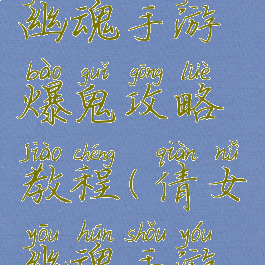 幽魂手游
bào guǐ gōng lüè
爆鬼攻略
jiào chéng qiàn nǚ
教程(倩女
yōu hún shǒu yóu
幽魂手游